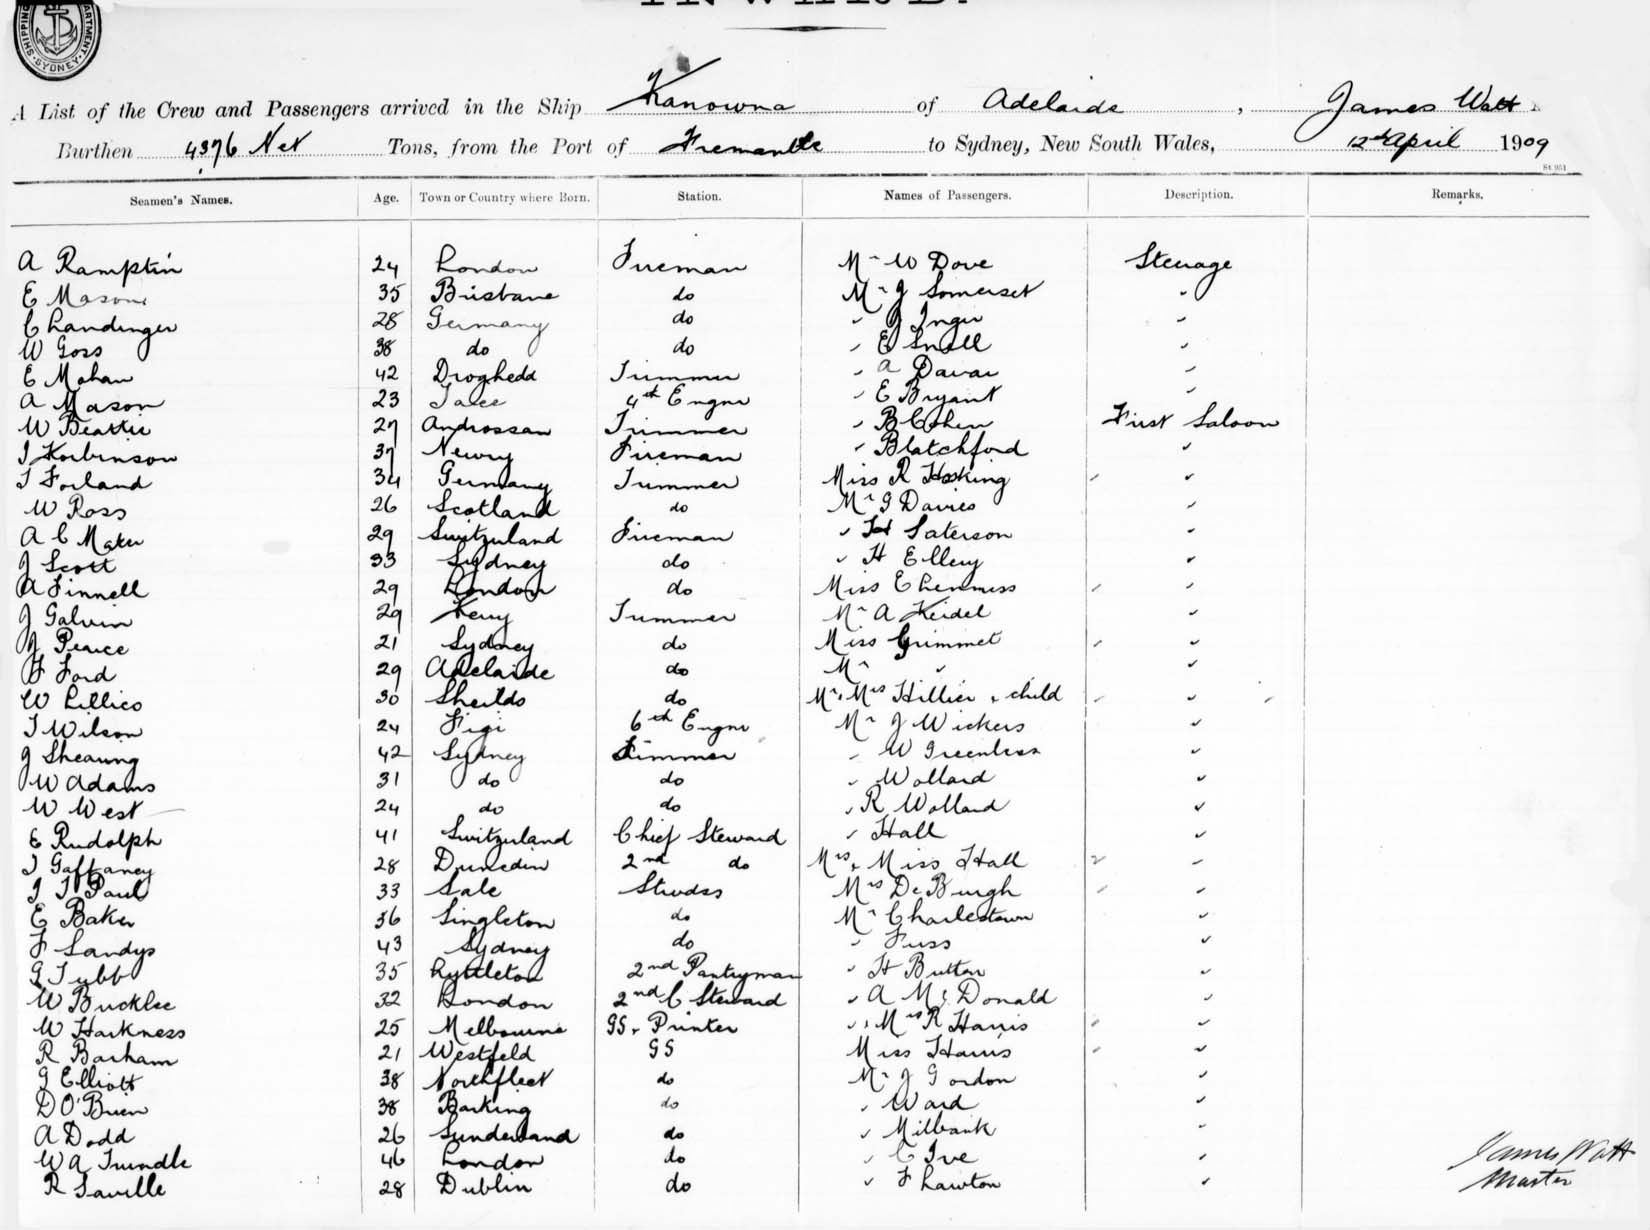 SHIPPING DEPARTMENT. SYDNEY.
INWARD.
A List of the Crew and Passengers arrived in the Ship Kanowna of Adelaide, James Watt
Burthen 4376 Net Tons, from the Port of Fremantle to Sydney, New South Wales, 12th April 1909
Seamen's Names. Age. Town or Country where Born. Station. Names of Passengers. Description. Remarks.
A Ramptin 24 London Fireman Mr W Dove Steerage
E Mason 35 Brisbane do Mr J Somerset "
C Landinger 28 Germany do " J Inger "
W Goss 38 do do " E Snell "
E Mohan 42 Drogheda Trimmer " A Davai "
A Mason 23 4th Engnr " E Bryant "
W Beattie 27 Androssan Trimmer " B Cohen First Saloon
J Korbinson 37 Newry Fireman " Blatchford "
T Forland 34 Germany Trimmer Miss R Hosking "
W Ross 26 Scotland do Mr G Davies "
A C Mater 29 Switzerland Fireman " H Saterson "
J Scott 33 Sydney do " H Ellery "
A Finnell 29 London do Miss E "
J Galvin 29 Kerry Trimmer Mr A Keidel "
J Pearce 21 Sydney do Miss Grimmet "
F Ford 29 Adelaide do Mr " "
W Lillico 30 Sheilds do Mr & Mrs Hillier & child "
T Wilson 24 Figi 6th Engnr Mr J Wickers "
J Shearing 42 Sydney Trimmer " W Greenless "
W Adams 31 do do " Wollard "
W West 24 do do " R Wollard "
E Rudolph 41 Switzerland Chief Steward " Hall "
T Gaffaney 28 Dunedin 2nd do Mrs & Miss Hall "
J T Paul 33 Sale Stwdss Mrs De Burgh "
E Baker 36 Singleton do Mr Charlestown "
F Sandys 43 Sydney do " Fuss "
G Tubb 35 Lyttleton 2nd Pantryman " H Button "
W Bucklee 32 London 2nd C Steward " A McDonald "
W Harkness 25 Melbourne GS & Printer " & Mrs R Harris "
R Barham 21 Westfeld GS Miss Harris "
G Elliott 38 Northfleet do Mr J Gordon "
D O'Brien 38 Barking do " Ward "
A Dodd 26 Sunderland do " Milbank "
W A Trundle 46 London do " C Ive "
R Saville 28 Dublin do " F Lawton "
James Watt
Master